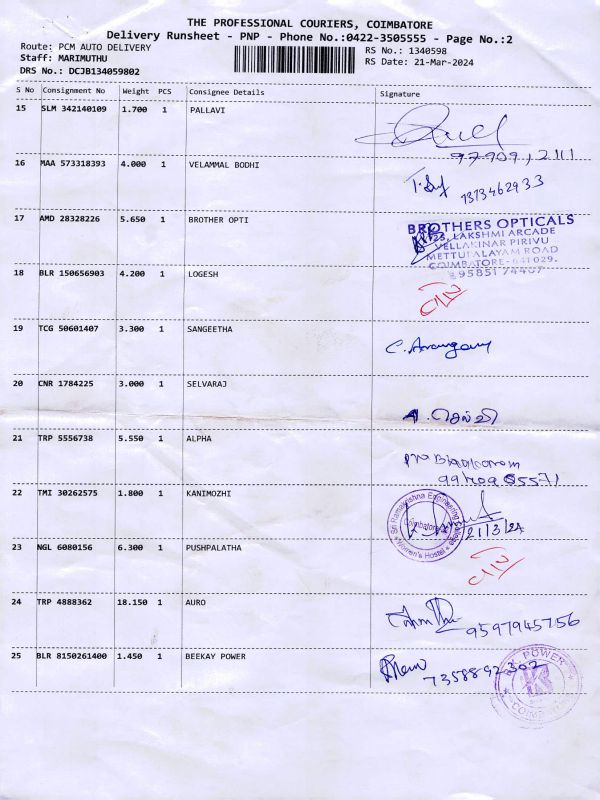 THE PROFESSIONAL COURIERS, COIMBATORE
Delivery Runsheet - PNP - Phone No.:0422-3505555 - Page No.:2
Route: PCM AUTO DELIVERY
RS No.: 1340598
Staff: MARIMUTHU
RS Date: 21-Mar-2024
DRS No.: DCJB134059802
S No Consignment No Weight PCS Consignee Details Signature
15 SLM 342140109 1.700 1 PALLAVI
16 MAA 573318393 4.000 1 VELAMMAL BODHI
17 AMD 28328226 5.650 1 BROTHER OPTI
BROTHERS OPTICALS
LAKSHMI ARCADE
VELLAKINAR PIRIVU
METTUPALAYAM ROAD
COIMBATORE-641029.
18 BLR 150656903 4.200 1 LOGESH
19 TCG 50601407 3.300 1 SANGEETHA
20 CNR 1784225 3.000 1 SELVARAJ
21 TRP 5556738 5.550 1 ALPHA
22 TMI 30262575 1.800 1 KANIMOZHI
Sri Ramakrishna Engineering College
Coimbatore
Women's Hostel
21/3/24
23 NGL 6080156 6.300 1 PUSHPALATHA
24 TRP 4888362 18.150 1 AURO
9597945756
25 BLR 8150261400 1.450 1 BEEKAY POWER
7358892302
POWER